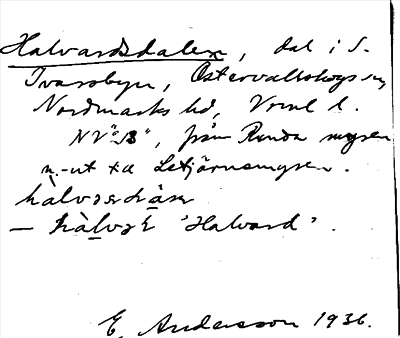 Halvardsdalen, dal i S.
Ivarsbyn, Östervallskogs sn,
Nordmarks hd, Vrml l.
NV"B", från Runda mysen
n.-ut till Letjärnsmysen.
hàlvɔsdàɩn
— hàlvɔʀ 'Halvard'.
E. Andersson 1936.